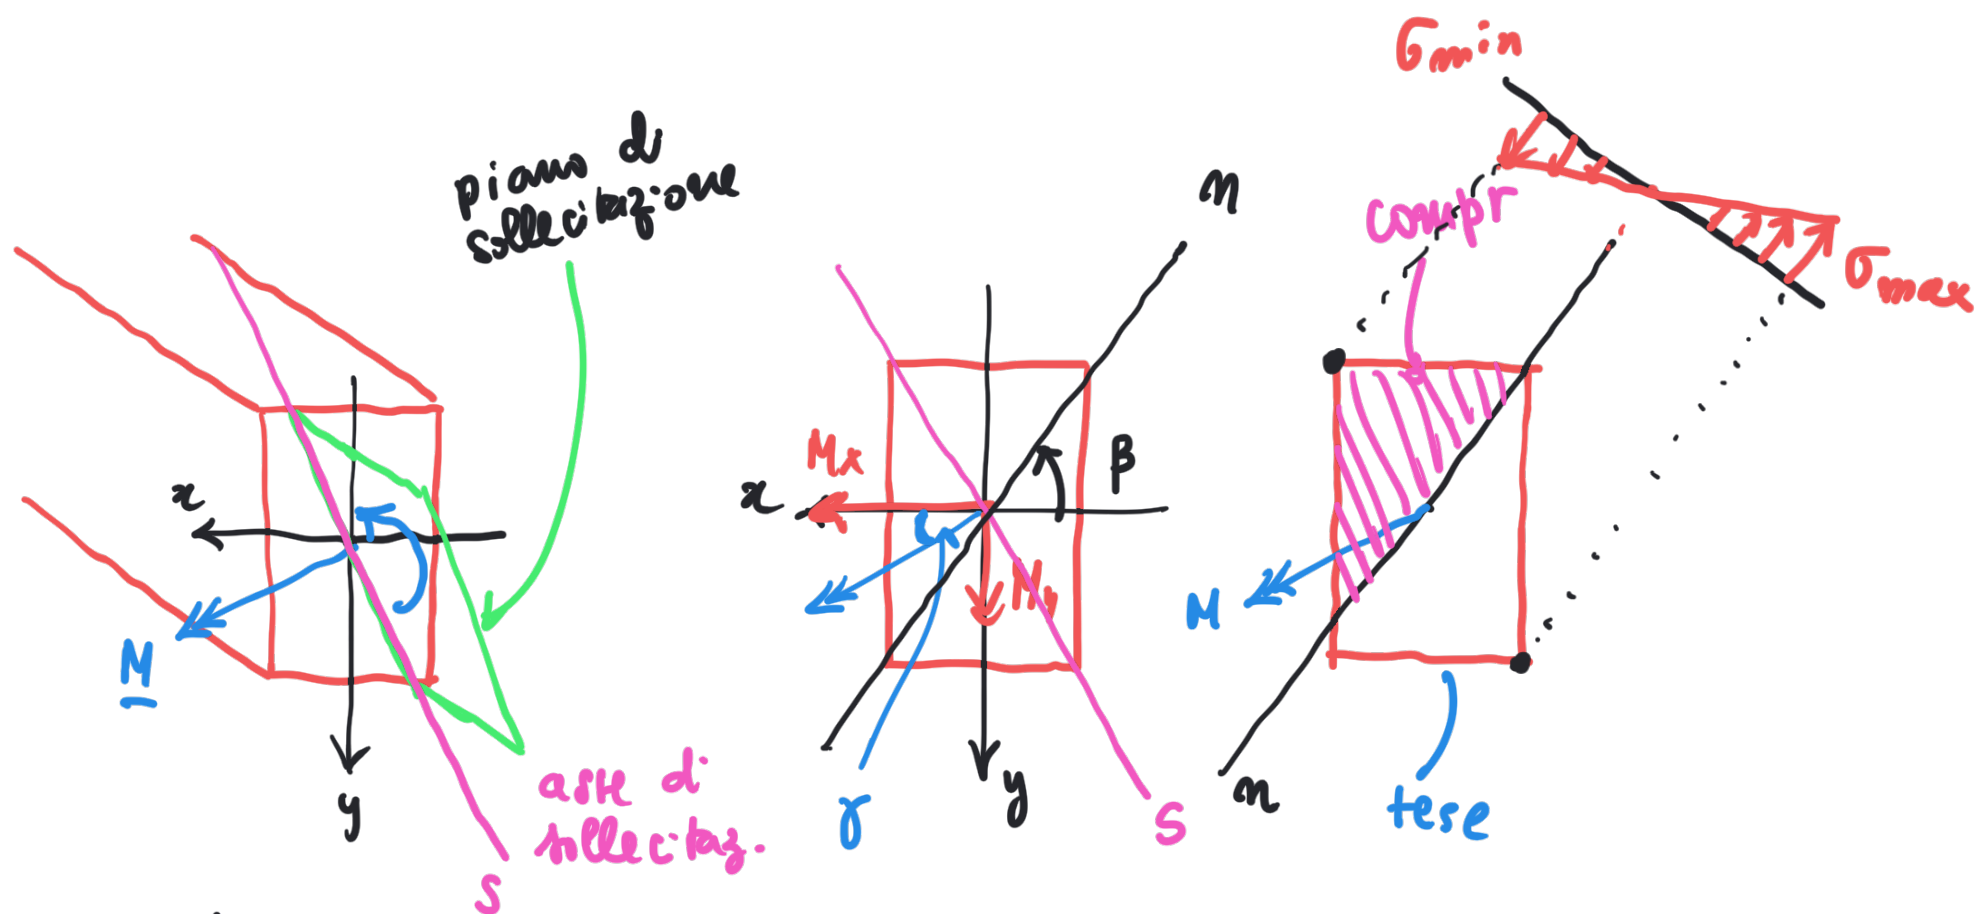 piano di
sollecitazione
x
M
y
asse di
sollecitaz.
s
n
x
Mx
β
My
γ
y
s
σmin
compr
σmax
M
n
tese